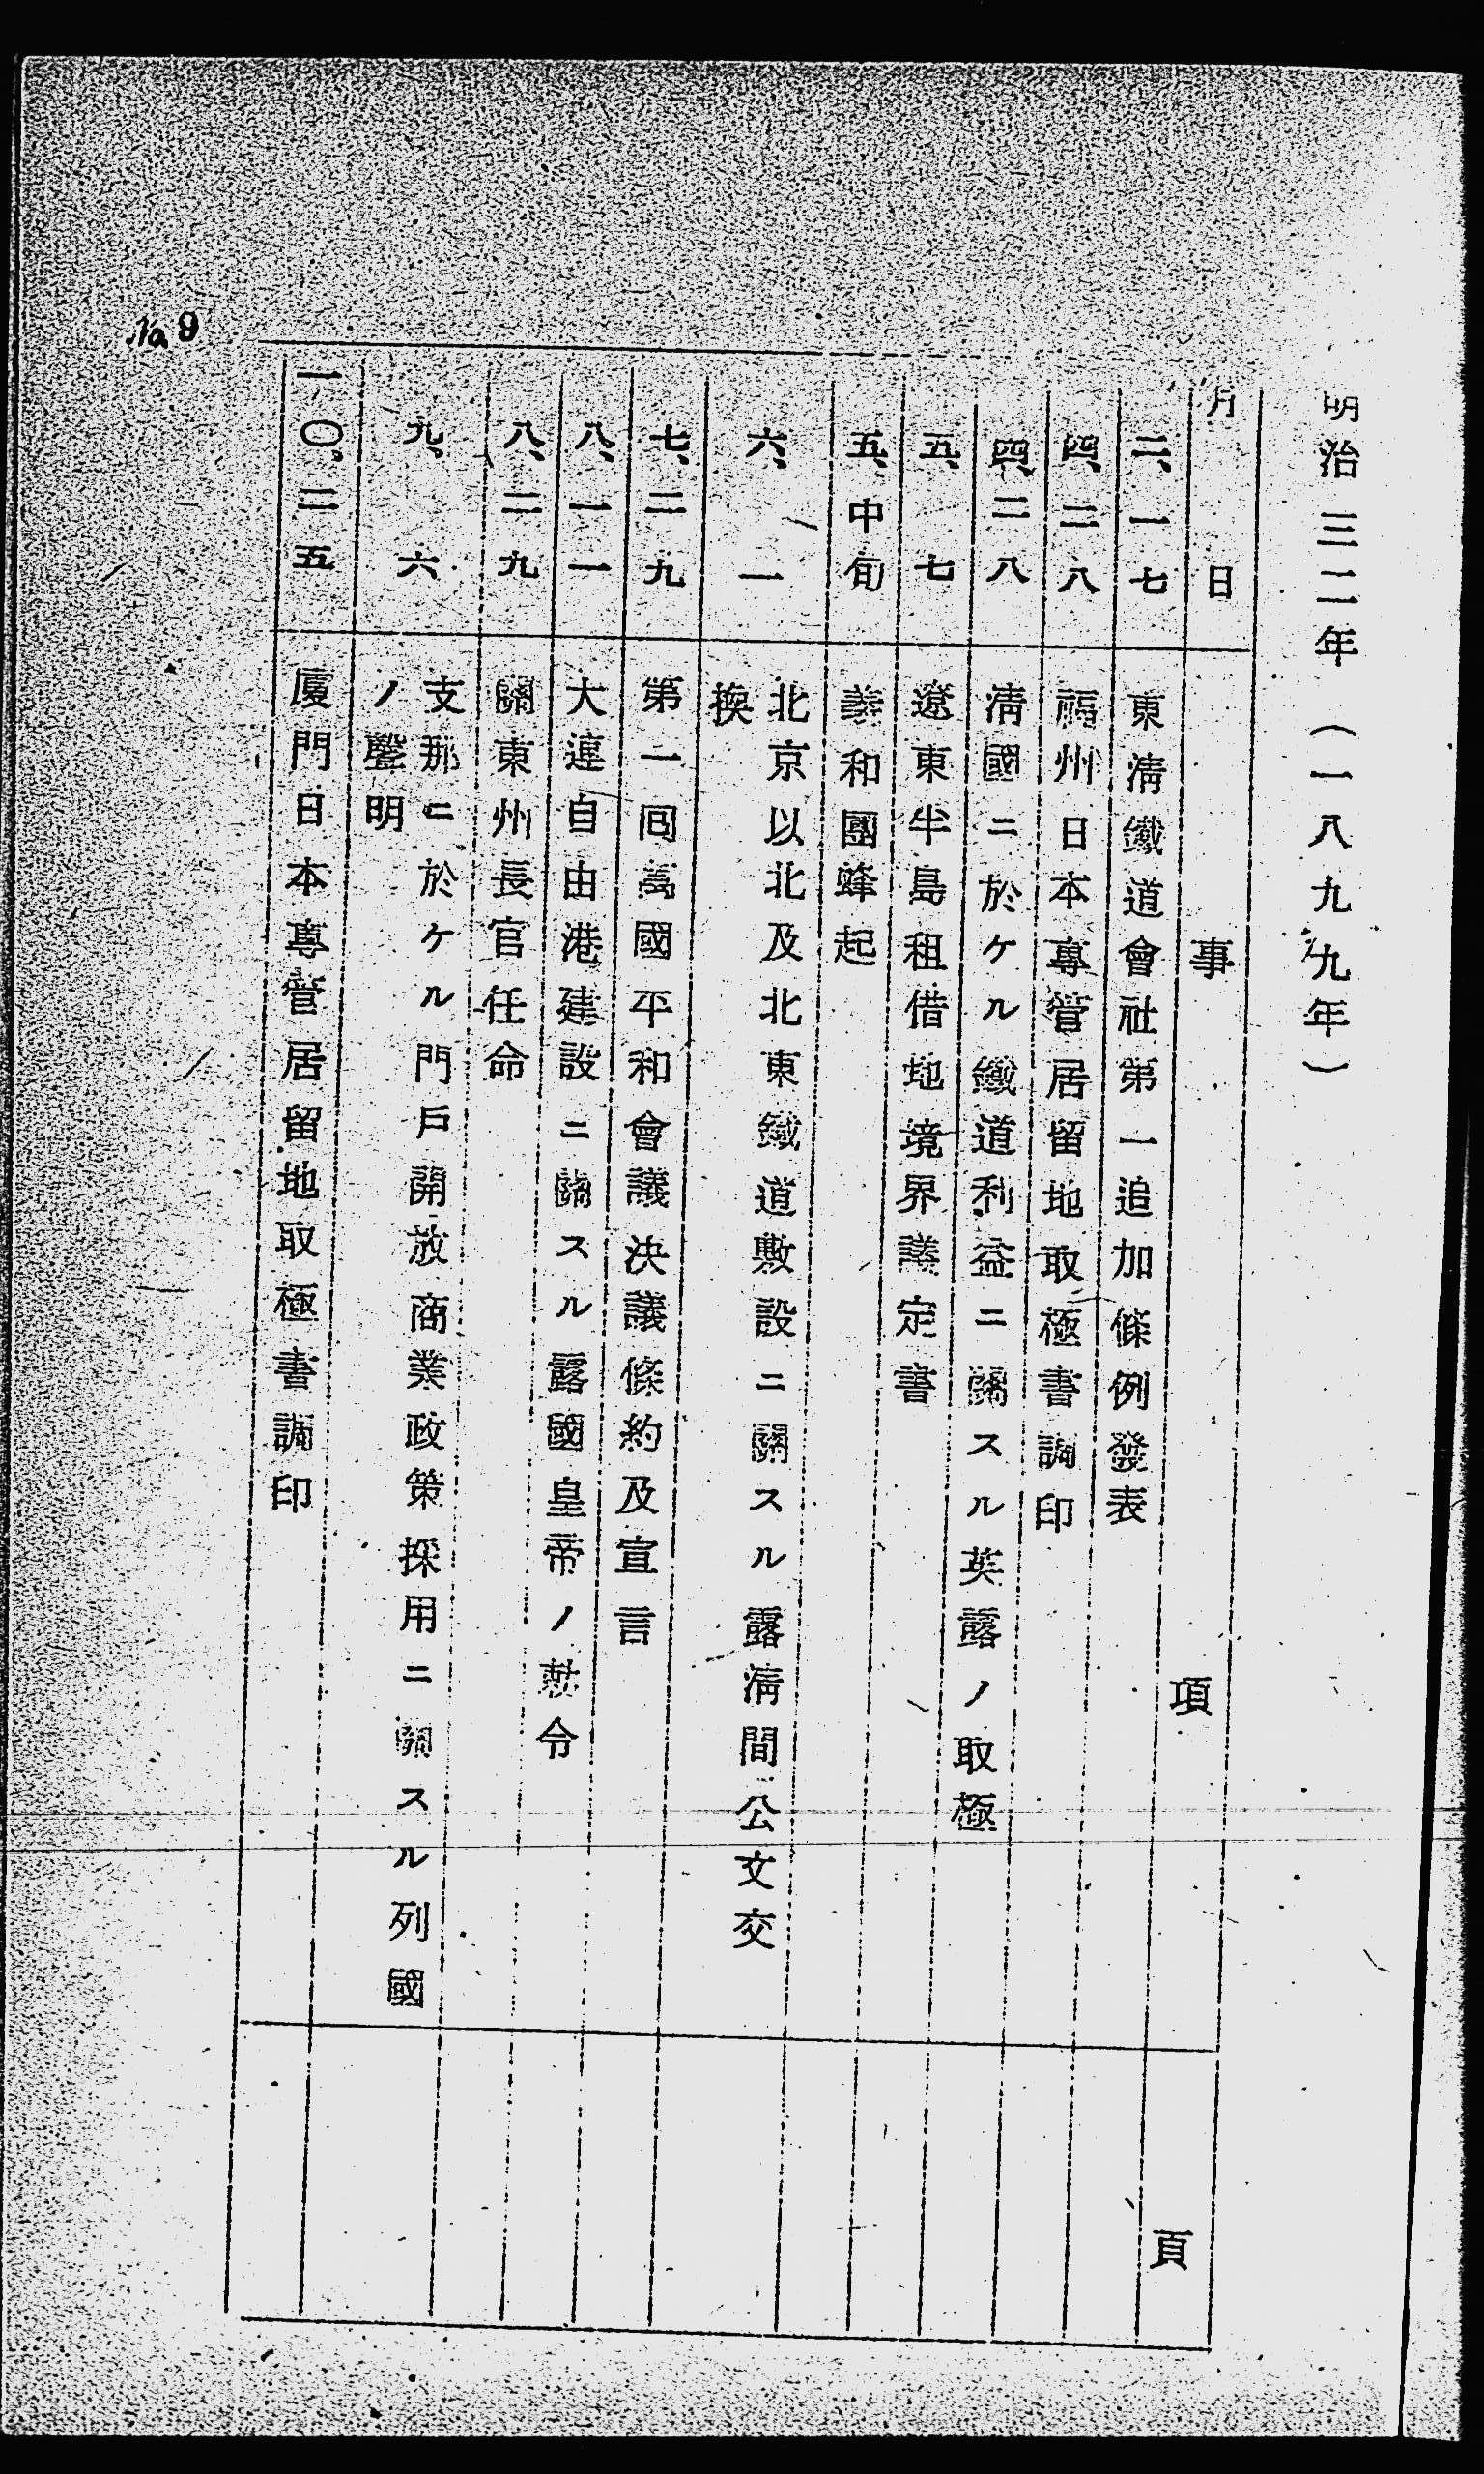 明治三二年(一八九九年)
月日 事項 頁
二、一七 東淸鐵道會社第一追加條例發表
四、二八 福州日本專管居留地取極書調印
四、二八 淸國ニ於ケル鐵道利益ニ關スル英露ノ取極
五、七 遼東半島租借地境界議定書
五、中旬 義和團蜂起
六、一 北京以北及北東鐵道敷設ニ關スル露淸間公文交
換
七、二九 第一囘萬國平和會議決議條約及宣言
八、一一 大連自由港建設ニ關スル露國皇帝ノ勅令
八、二九 關東州長官任命
九、六 支那ニ於ケル門戶開放商業政策採用ニ關スル列國
ノ聲明
一〇、二五 廈門日本專管居留地取極書調印